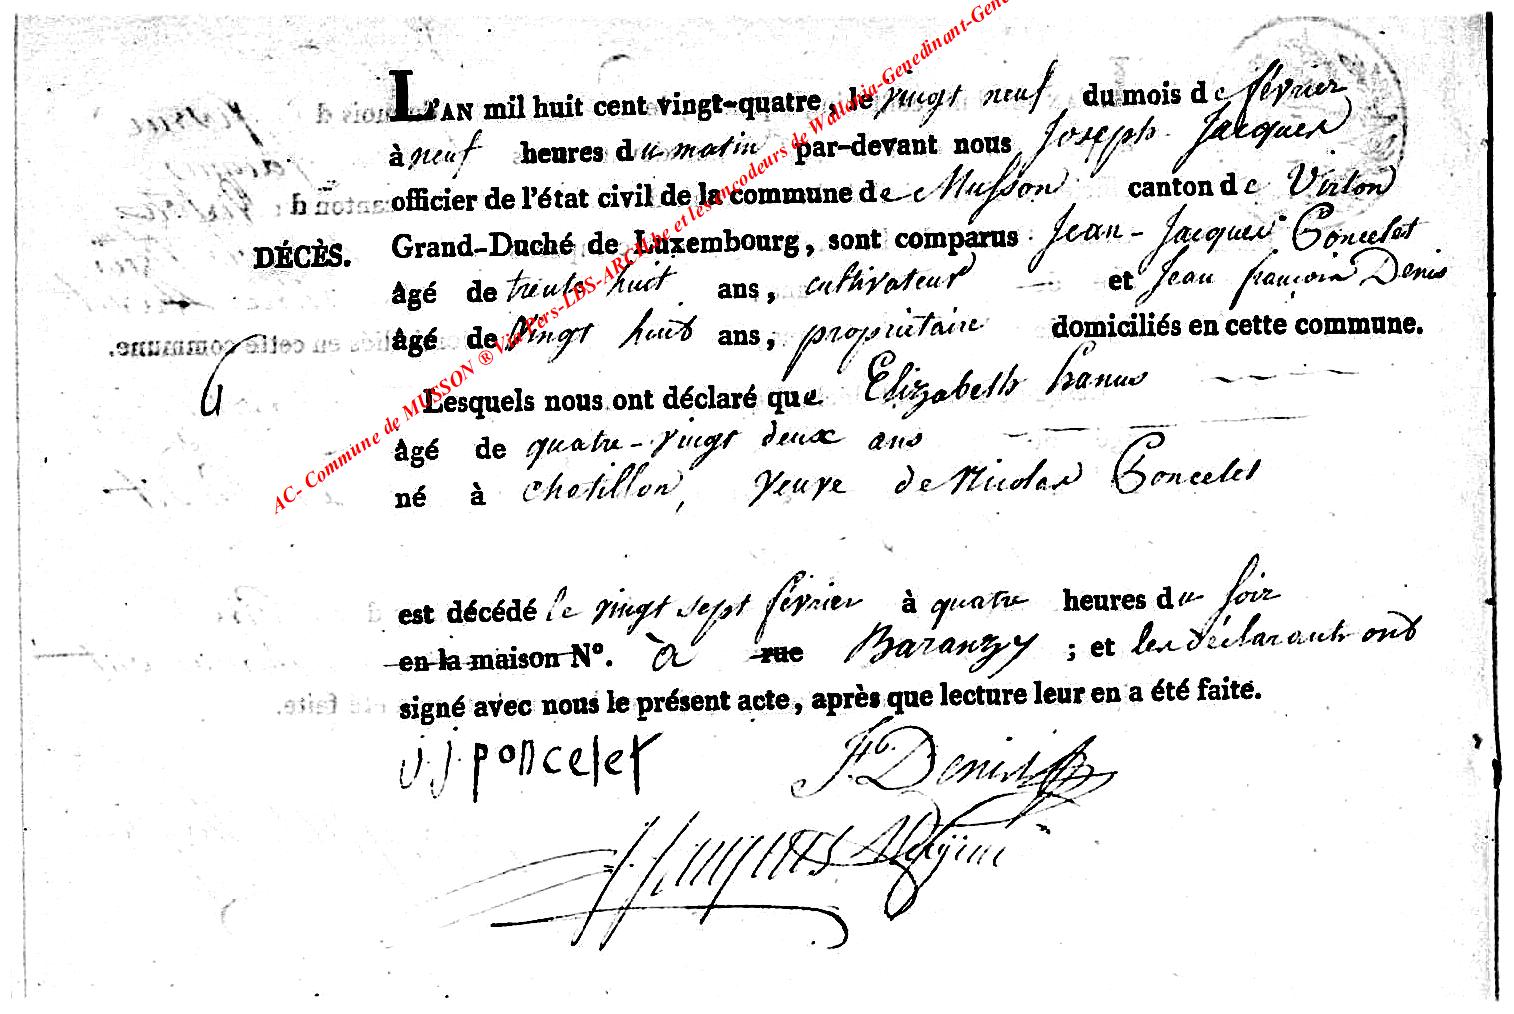 L'AN mil huit cent vingt-quatre, le vingt neuf du mois de février
à neuf heures du matin par-devant nous Joseph Jacques
officier de l'état civil de la commune de Musson canton de Virton
DÉCÈS. Grand-Duché de Luxembourg, sont comparus Jean-Jacques Poncelet
âgé de trente huit ans, cultivateur et Jean françois Denis
âgé de vingt huit ans, propriétaire domiciliés en cette commune.
Lesquels nous ont déclaré que Elizabeth hanus
âgé de quatre-vingt deux ans
né à chatillon, veuve de Nicolas Poncelet
est décédé le vingt sept février à quatre heures du soir
en la maison No. à rue Baranzy ; et les déclarants ont
signé avec nous le présent acte, après que lecture leur en a été faite.
j. j. poncelet Denis
AC- Commune de MUSSON ® Via Pers-LDS-ARCH.be et les encodeurs de Wallonia-Genedinant-Gene